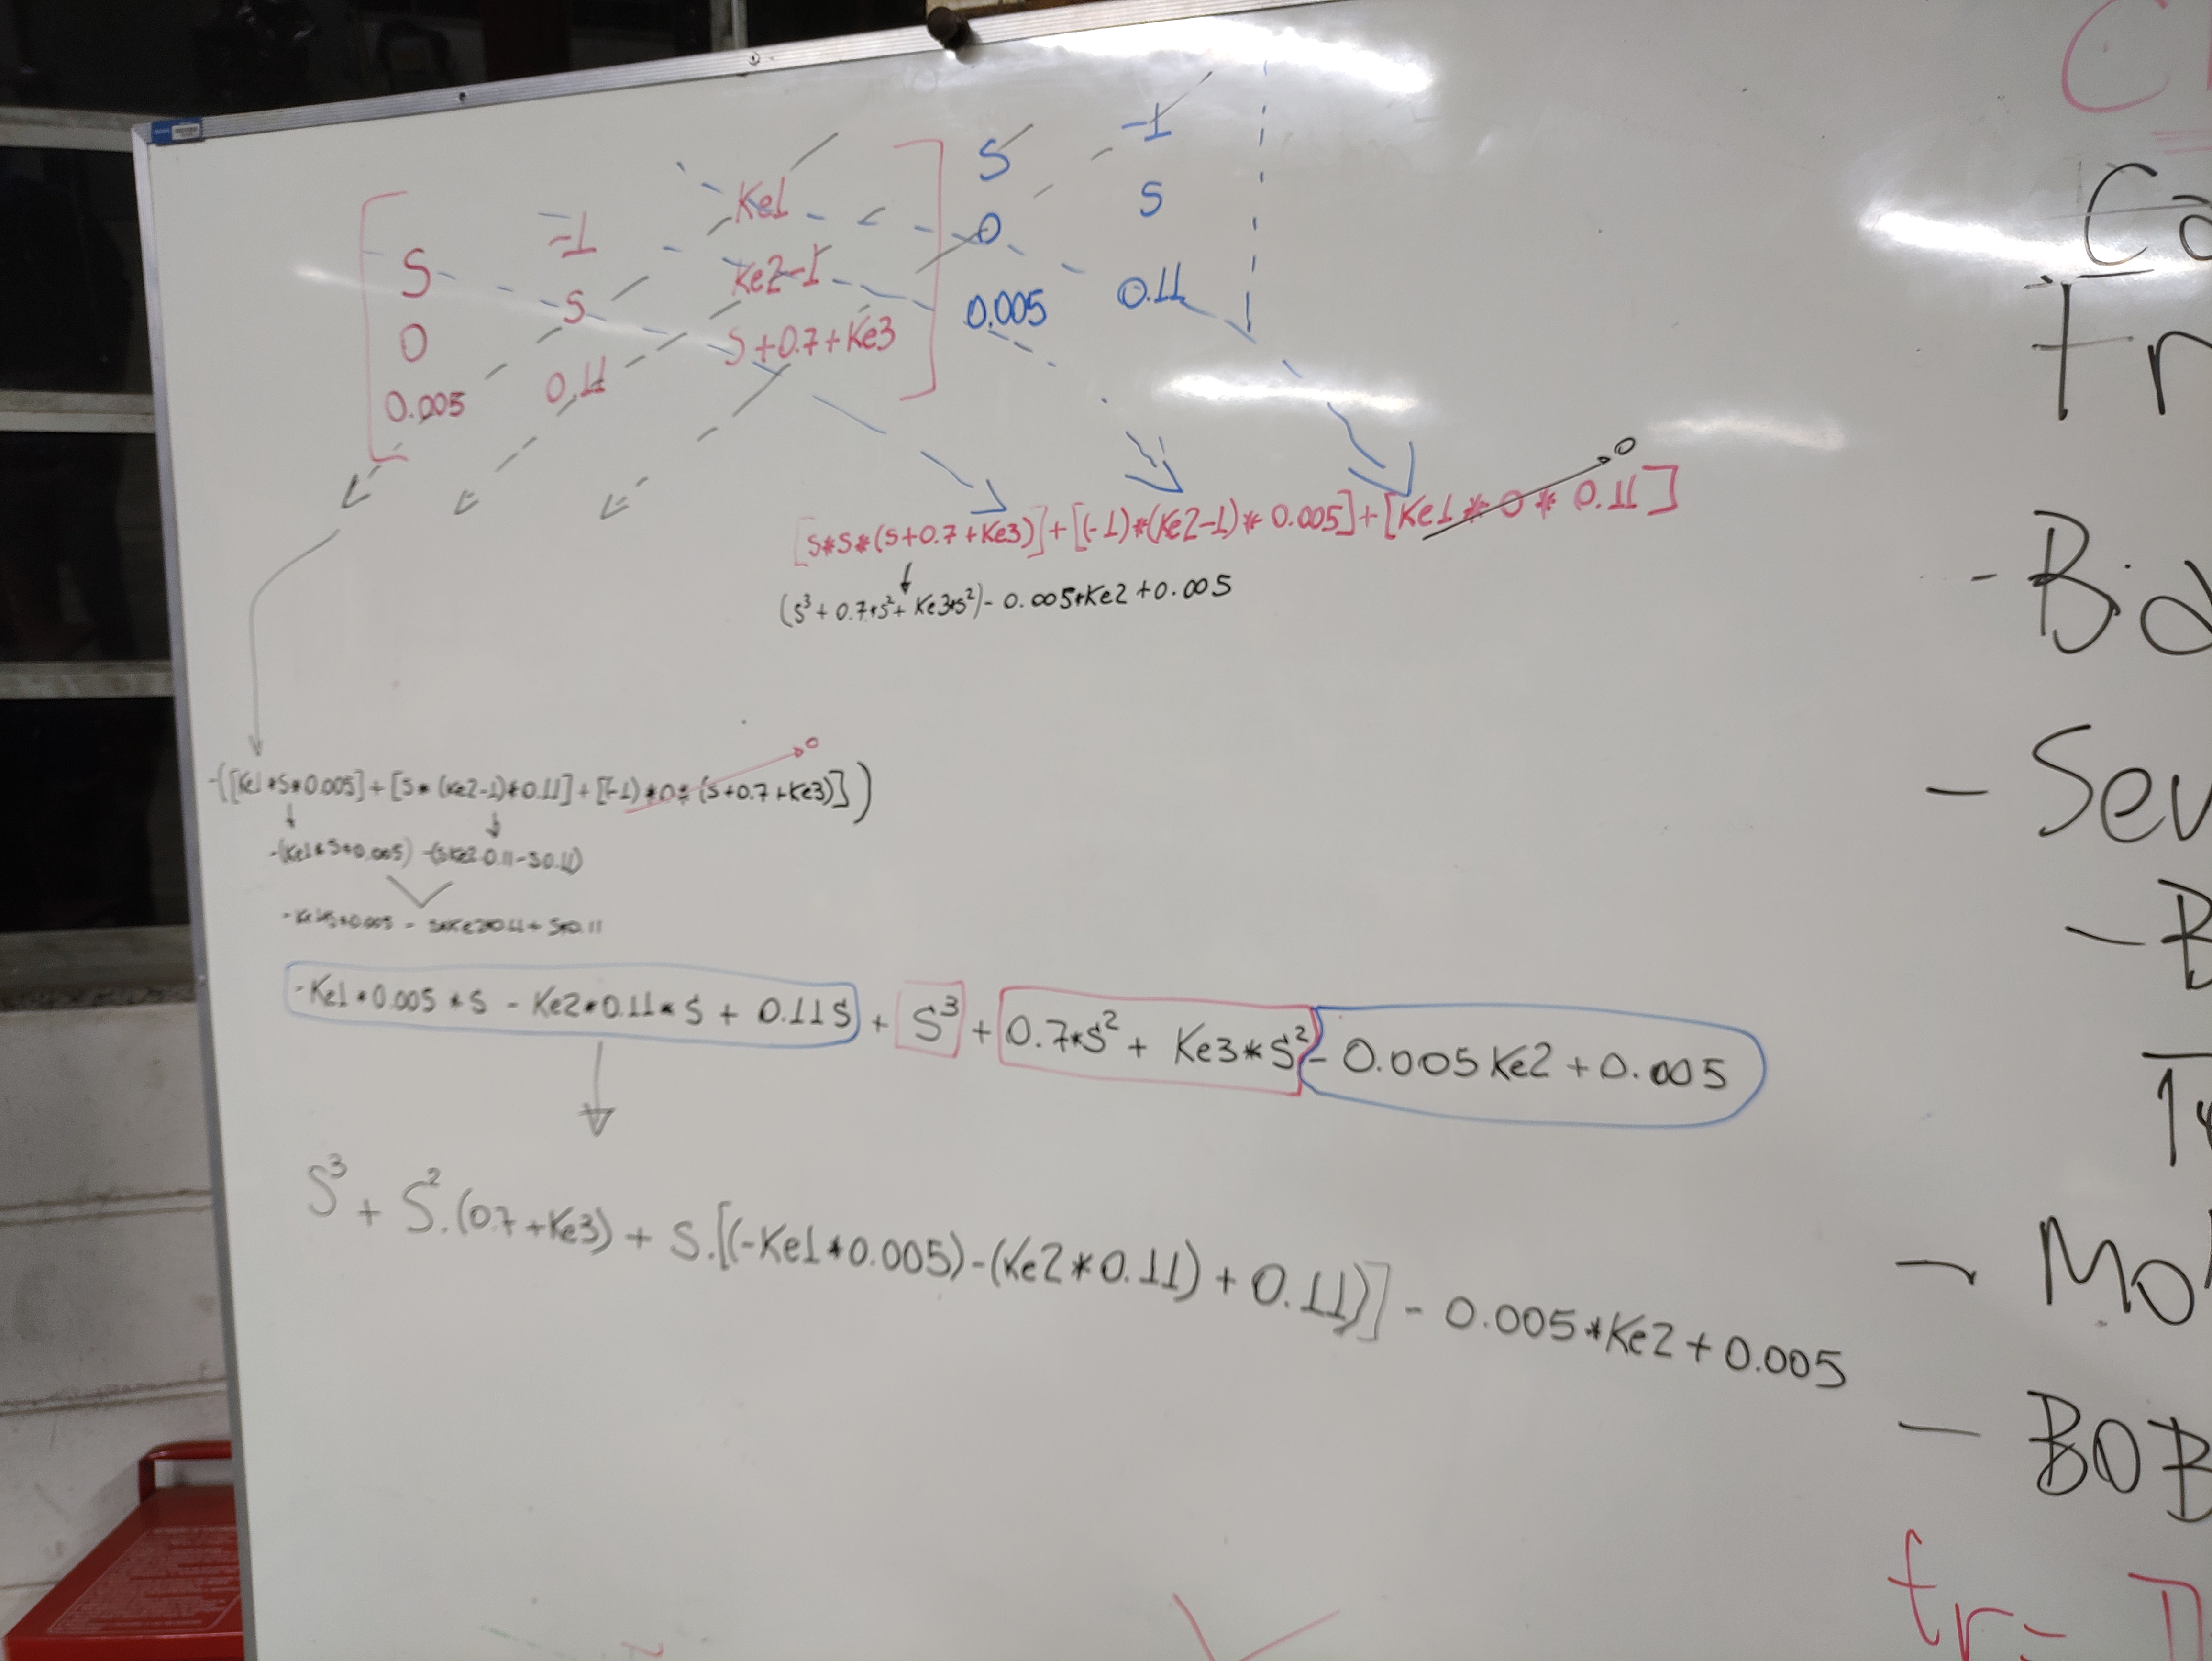 S -1 Ke1 S -1
0 S Ke2-1 0 S
0.005 0.11 S+0.7+Ke3 0.005 0.11
[S*S*(S+0.7+Ke3)]+[(-1)*(Ke2-1)*0.005]+[Ke1*0*0.11] 0
(S³+0.7*S²+Ke3*S²)-0.005*Ke2+0.005
-([Ke1*S*0.005]+[S*(Ke2-1)*0.11]+[(-1)*0*(S+0.7+Ke3)]) 0
-(Ke1*S*0.005) -(SKe2 0.11-S0.11)
-Ke1*S*0.005 - S*Ke2*0.11+S*0.11
-Ke1*0.005*S - Ke2*0.11*S + 0.11S + S³ + 0.7*S² + Ke3*S² - 0.005Ke2+0.005
S³ + S².(0.7+Ke3) + S.[(-Ke1*0.005)-(Ke2*0.11)+0.11)] - 0.005*Ke2+0.005
C
Co
Fr
- Bio
- Sev
- B
- Mo
- BOB
tr=